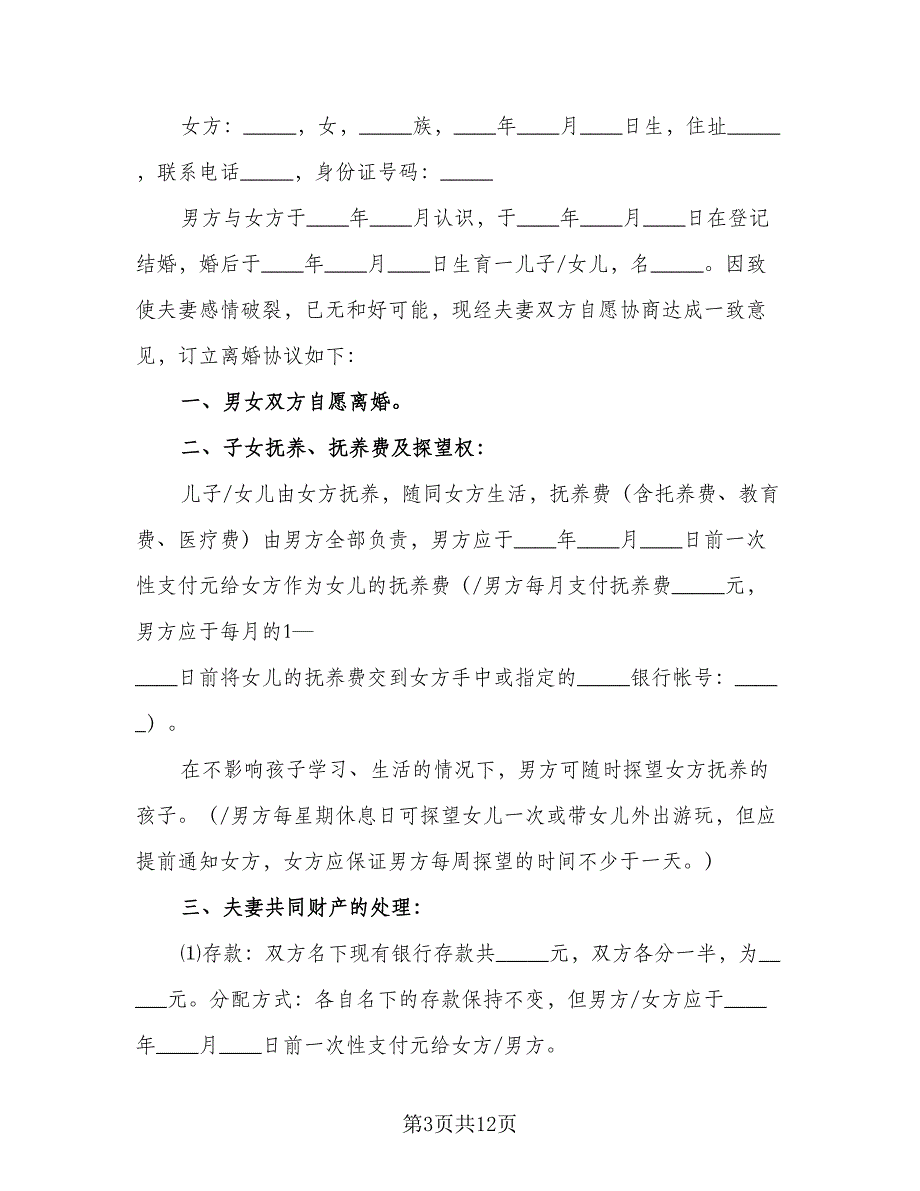 女方：_____，女，_____族，____年____月____日生，住址_____
，联系电话_____，身份证号码：_____
男方与女方于____年____月认识，于____年____月____日在登记
结婚，婚后于____年____月____日生育一儿子/女儿，名_____。因致
使夫妻感情破裂，已无和好可能，现经夫妻双方自愿协商达成一致意
见，订立离婚协议如下：
一、男女双方自愿离婚。
二、子女抚养、抚养费及探望权：
儿子/女儿由女方抚养，随同女方生活，抚养费（含托养费、教育
费、医疗费）由男方全部负责，男方应于____年____月____日前一次
性支付元给女方作为女儿的抚养费（/男方每月支付抚养费_____元，
男方应于每月的1—
____日前将女儿的抚养费交到女方手中或指定的_____银行帐号：____
_）。
在不影响孩子学习、生活的情况下，男方可随时探望女方抚养的
孩子。（/男方每星期休息日可探望女儿一次或带女儿外出游玩，但应
提前通知女方，女方应保证男方每周探望的时间不少于一天。）
三、夫妻共同财产的处理：
⑴存款：双方名下现有银行存款共_____元，双方各分一半，为__
___元。分配方式：各自名下的存款保持不变，但男方/女方应于____
年____月____日前一次性支付元给女方/男方。
第3页共12页